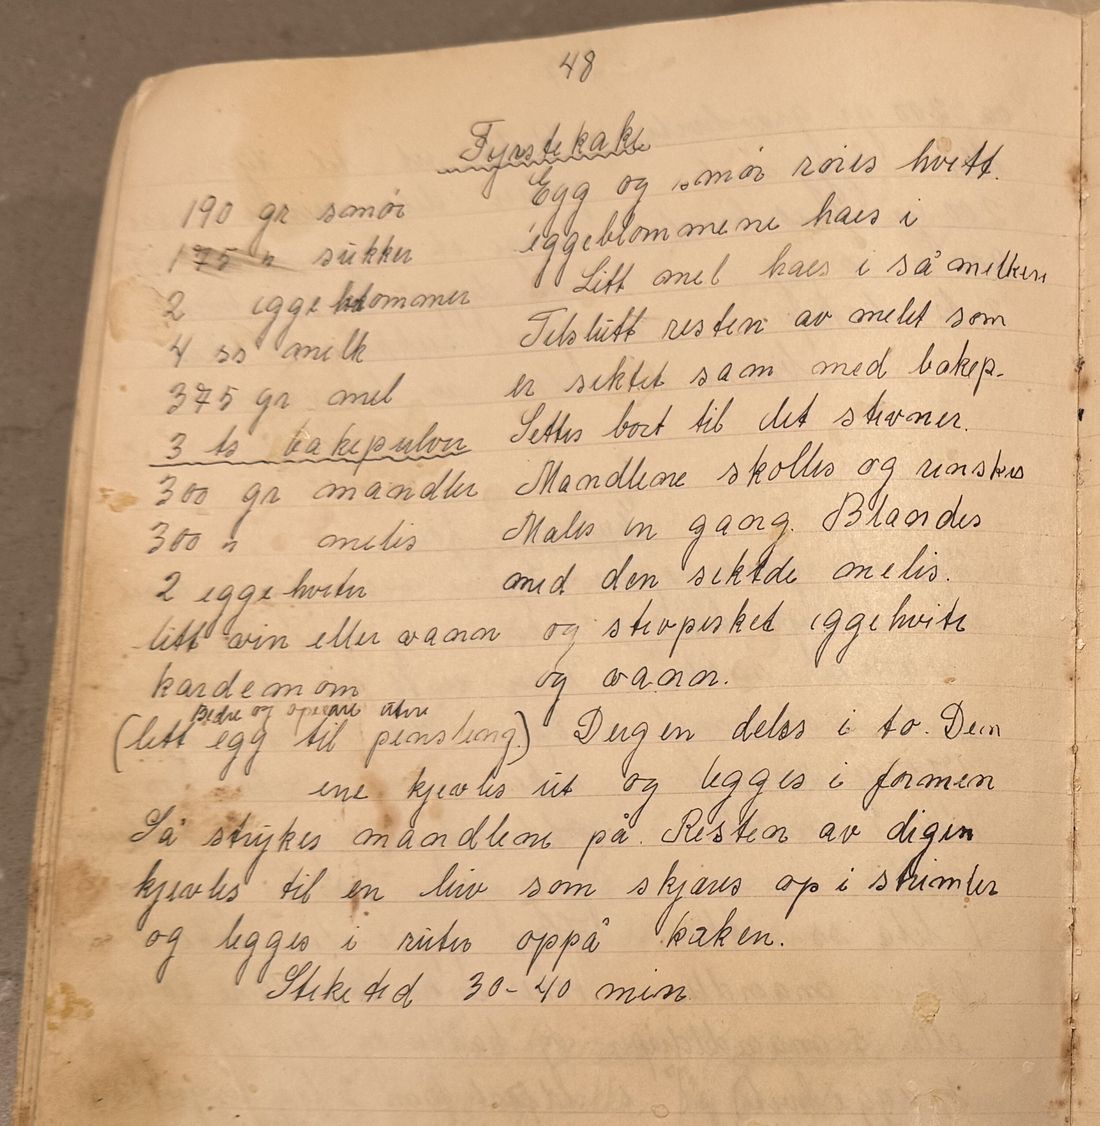 48
Fyrstekake
190 gr smør Egg og smør røres hvitt.
175 " sukker eggeblommene haes i
2 eggeblommer Litt mel haes i så melken
4 ss melk Tilslutt resten av melet som
375 gr mel er siktet sam med bakep.
3 ts bakepulver Settes bort til det stivner.
300 gr mandler Mandlene skolles og renskes
300 " melis Males en gang. Blandes
2 eggehviter med den siktde melis.
litt vin eller vann og stivpisket eggehvite
kardemom og vann.
Bedre og uten
(litt egg til pensling.) Deigen deles i to. Den
ene kjevles ut og legges i formen
Så strykes mandlene på. Resten av digen
kjevles til en leiv som skjæres op i strimler
og legges i ruter oppå kaken.
Steketid 30-40 min